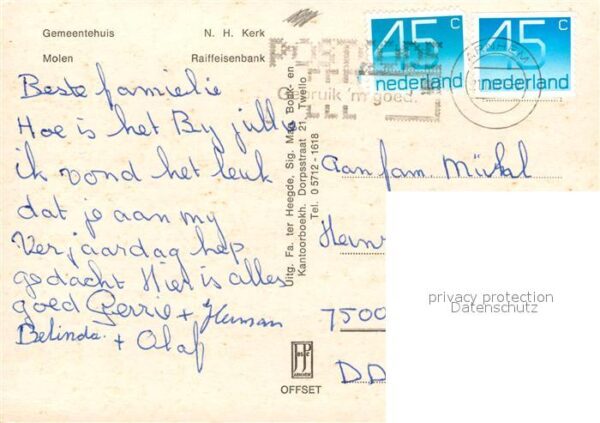 Gemeentehuis N. H. Kerk
Molen Raiffeisenbank
Beste famielie
Hoe is het By jullie
ik vond het leuk
dat je aan my
Verjaardag hep
gedacht Hier is alles
goed Gerrie + Herman
Belinda + Olaf
Uitg. Fa. ter Heegde, Sig. Mag. Boek- en
Kantoorboekh. Dorpsstraat 21 Twello
Tel. 05712-1618
45 c
nederland
45 c
nederland
POSTCODE
Gebruik 'm goed.
ARNHEM
Aan fam.
Hein
7500
DD
privacy protection
Datenschutz
ARNHEM
OFFSET